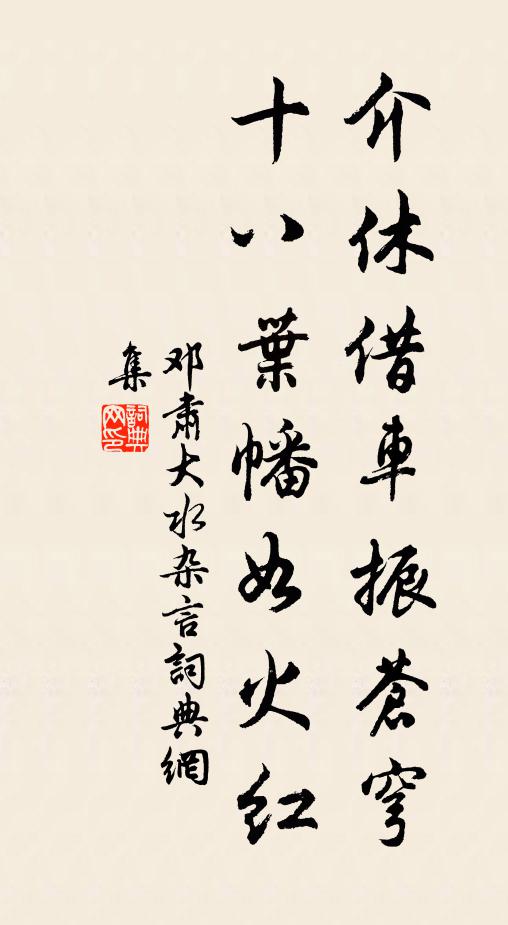 介休借車振蒼穹
十八葉幡如火紅
邓肅大水杂言詞典網
集
詞典
网印